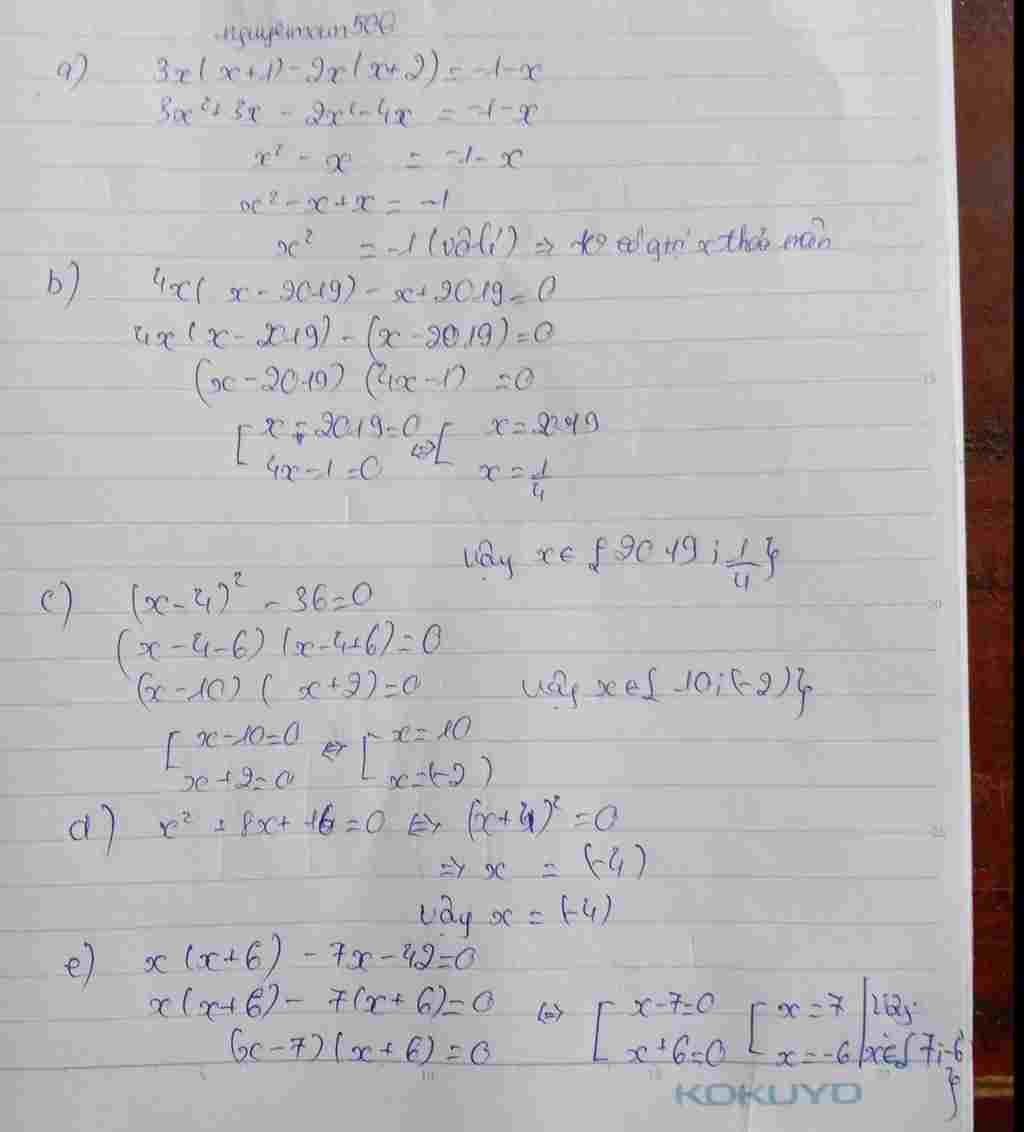 nguyenxun500
a) 3x(x+1)-2x(x+2)=-1-x
3x²+3x - 2x²-4x = -1-x
x² - x = -1-x
x²-x+x = -1
x² = -1 (vô lí) => ko có giá trị x thỏa mãn
b) 4x(x-2019)-x+2019=0
4x(x-2019)-(x-2019)=0
(x-2019)(4x-1) =0
[x-2019=0 <=> [x=2019
4x-1=0 x=1/4
Vậy x∈{2019;1/4}
c) (x-4)² - 36=0
(x-4-6)(x-4+6)=0
(x-10)(x+2)=0 Vậy x∈{10;(-2)}
[x-10=0 <=> [x=10
x+2=0 x=(-2)
d) x²+8x+16=0 <=> (x+4)²=0
=> x = (-4)
Vậy x = (-4)
e) x(x+6)-7x-42=0
x(x+6)-7(x+6)=0 <=> [x-7=0 [x=7 | Vậy
(x-7)(x+6)=0 x+6=0 x=-6 | x∈{7;-6
}
KOKUYO